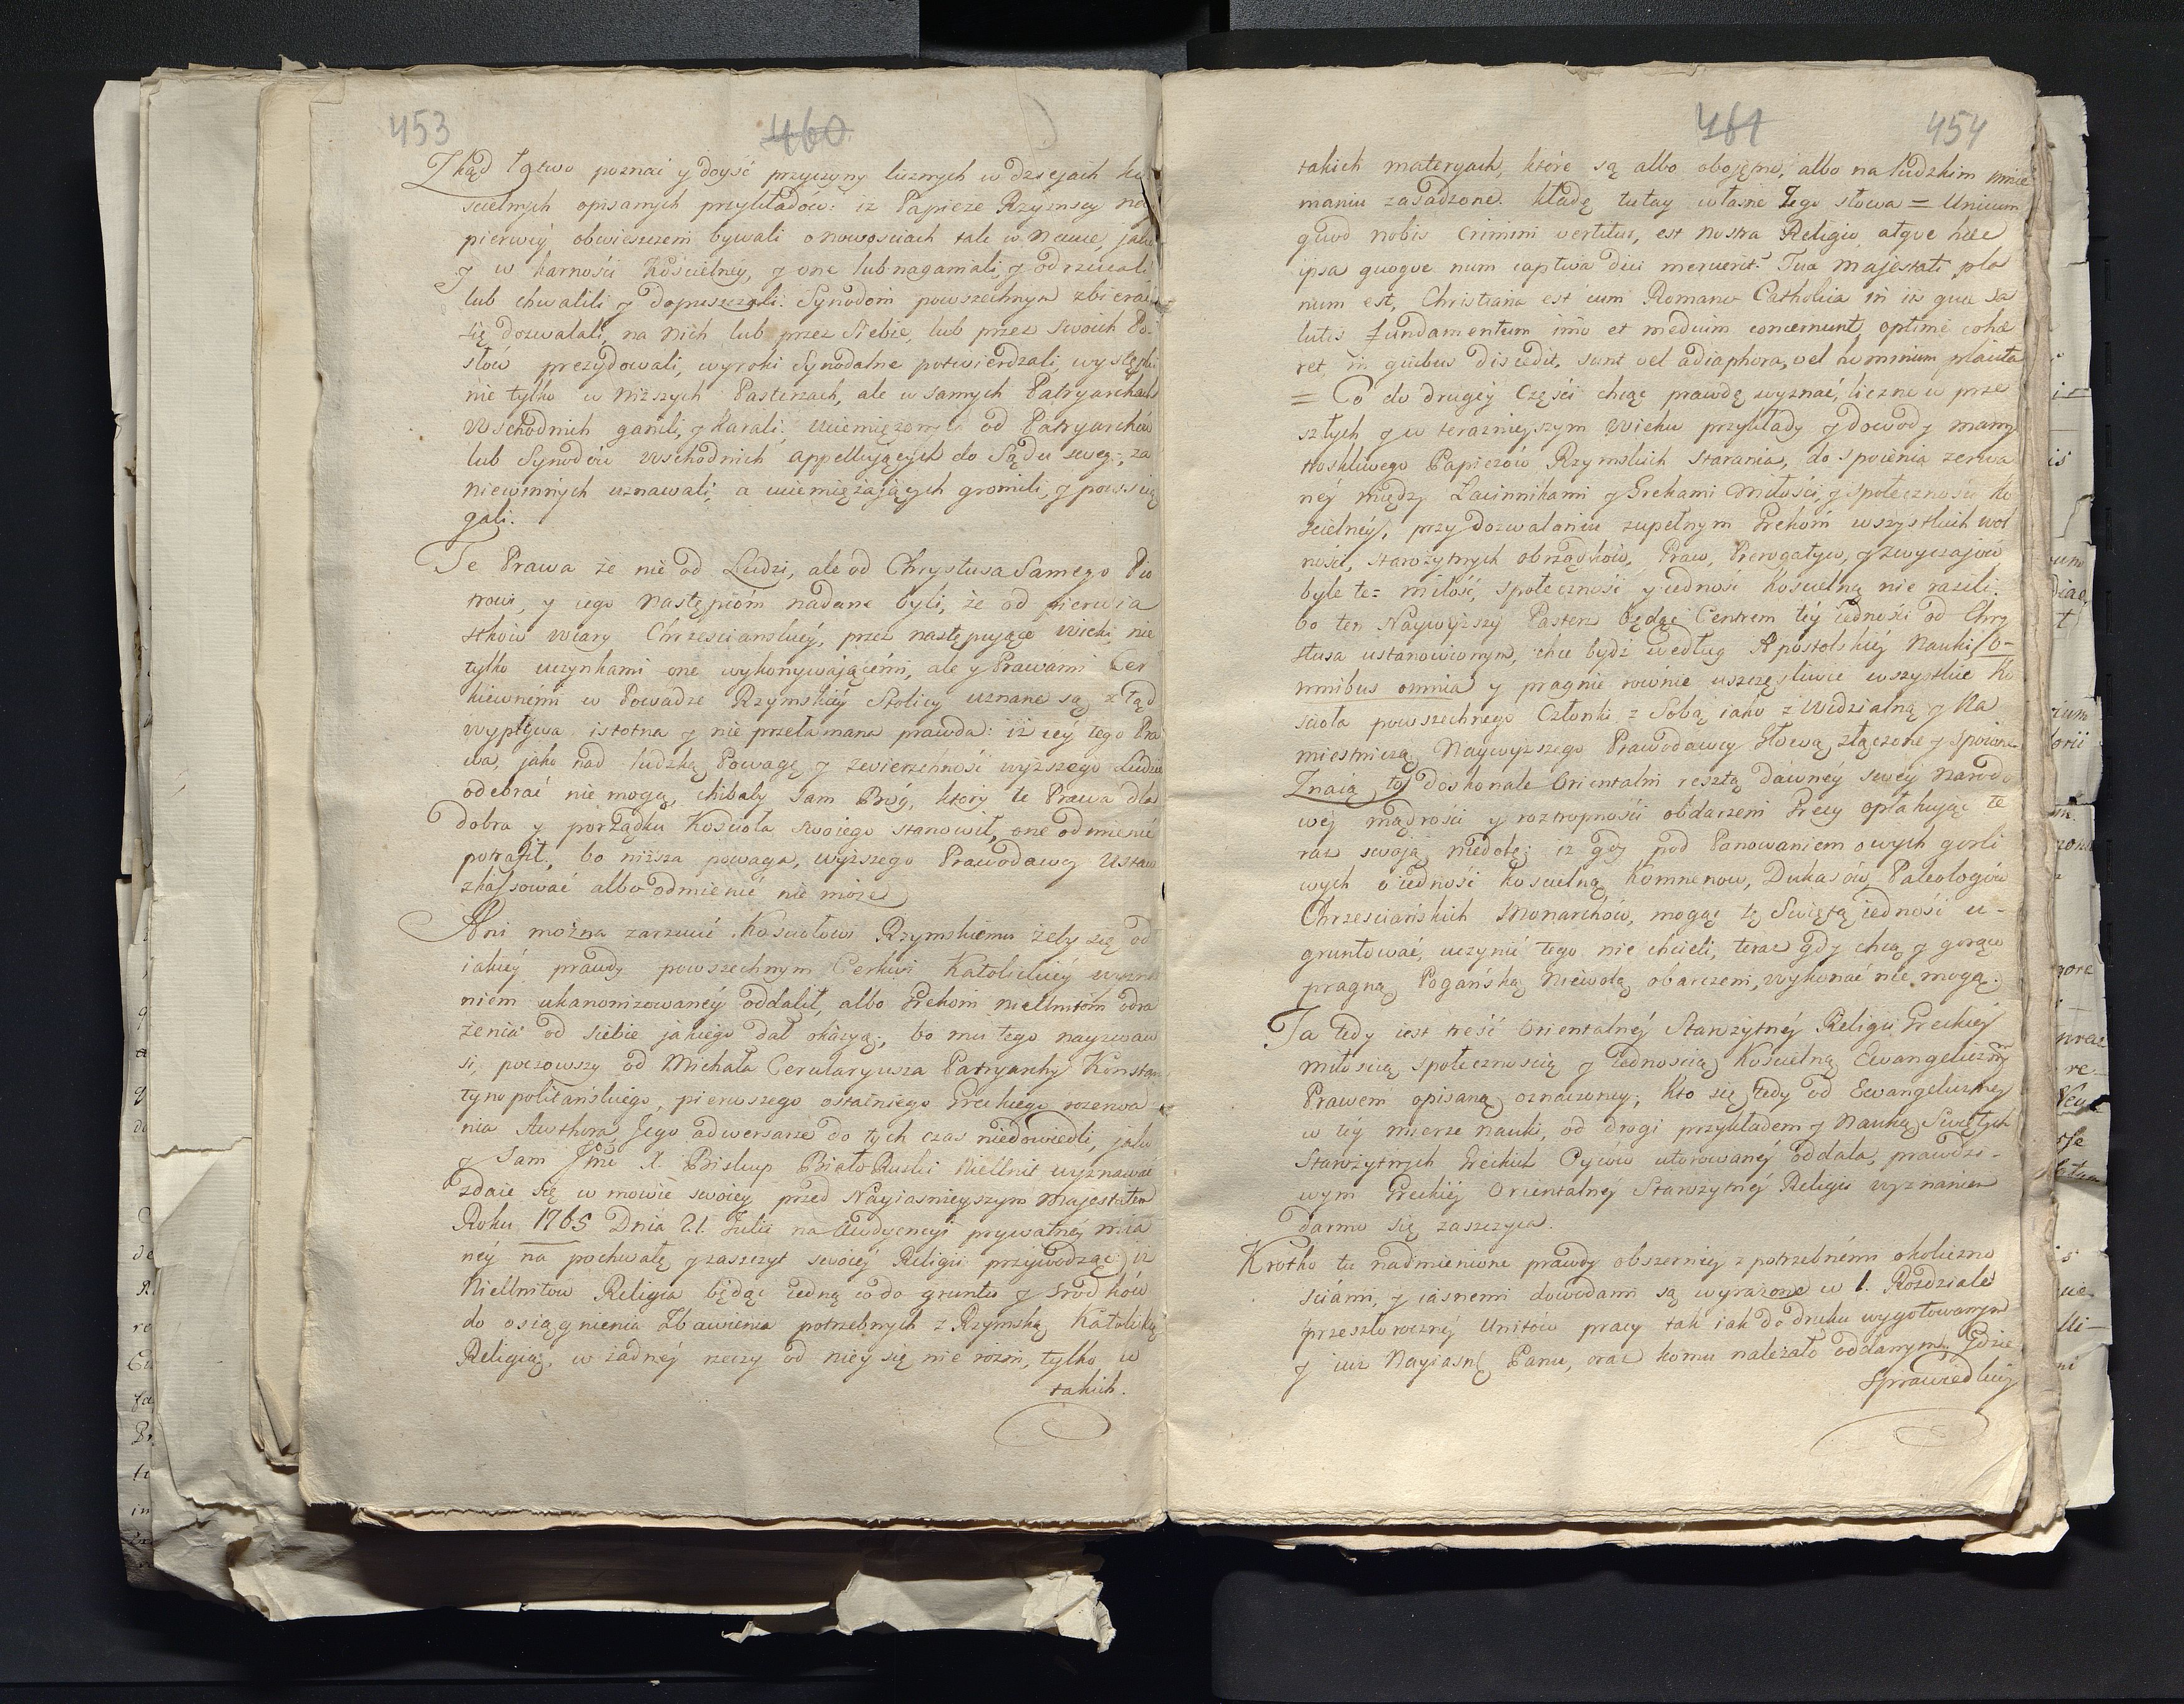 453
460
Zkąd łatwo poznać y doyść przyczyny licznych w dziejach ko
scielnych opisanych przykładów: iż Papieże Rzymscy nay
pierwey obwieszczeni bywali o nowosciach tak w Nauce, jako
y w karności Kościelney, y one lub naganiali, y odrzucali
lub chwalili y dopuszczali. Synodom powszechnym zbierać
się dozwalali, na nich lub przez Siebie, lub przez swoich Po-
słów prezydowali, wyroki Synodalne potwierdzali, występki
nie tylko w niższych Pasterzach, ale w samych Patryarchach
Wschodnich ganili, y karali. uciemiężonych od Patryarchów
lub Synodów Wschodnich appellujących do Sądu swego, za
niewinnych uznawali, a uciemiężających gromili, y powscią
gali.
Te Prawa że nie od Ludzi, ale od Chrystusa Samego Pio
trowi, y iego Następcóm nadane byli, że od pierwia
stków wiary Chrzescianskiey, przez następujące wieki nie
tylko uczynkami one wykonywającemi, ale y Prawami Cer
kiewnemi w Powadze Rzymskiey Stolicy uznane są, z tąd
wypływa istotna y nie przełamana prawda: iż cey tego Pra
wa, jako nad ludzką Powagę y zwierzchność wyższego Ludzie
odebrać nie mogą, chibaby sam Bóg, ktory te Prawa dla
dobra y porządku Kościoła swojego stanowił, one odmienić
potrafił, bo niższa powaga, wyższego Prawodawcy Ustaw
zkassować albo odmienić nie może.
Ani można zarzucić Kościołowi Rzymskiemu żeby się od
iakiey prawdy powszechnym Cerkwi Katolickiey wyzna
niem ukanonizowaney oddalił, albo Grekom nieUnitom odra
żenia od siebie jakiego dał okazyą; bo mu tego nayzwaw
si, począwszy od Michała Cerularyusza Patryarchy Konstan
tynopolitańskiego, pierwszego ostatniego Greckiego rozerwa
nia Authora Jego adwersarze do tych czas niedowiedli, jako
y Sam Jmć X. Biskup BiałoRuski NieUnit wyznawać
zdaie się w mowie swoiey przed Nayiasnieyszym Majestatem
Roku 1765 Dnia 21. Julii na Audyencyi prywatney mia
ney na pochwałę y zaszczyt swoiey Religii przywodząc iż
NieUnitow Religia będąc iedną co do gruntu y srodków
do osiągnienia Zbawienia potrzebnych z Rzymską Katolicką
Religią, w żadney rzeczy od niey się nie rożni, tylko w
takich.
461
454
takich materyach, które są albo obojętne, albo na ludzkim mnie
maniu zasadzone. Kładę tutay własne Jego słowa = Unicum
quod nobis crimini vertitur, est nostra Religio, atque hæc
ipsa quoque num captiva dici meruerit? Tua Majestati pla
num est, Christiana est cum Romano Catholica in iis quæ sa
lutis fundamentum imo et medium concernunt, optimè cohæ
ret, in quibus discedit, sunt vel adiaphora, vel hominum placita
= Co do drugiey Części chcąc prawdę wyznać, liczne w prze
szłych y w teraznieyszym Wieku przykłady y dowody mamy
troskliwego Papieżów Rzymskich starania, do spoienia zerwa
ney między Łacinnikami y Grekami Miłości, y społeczności Ko
scielney, przy dozwalaniu zupełnym Grekóm wszystkich wol
ności, starożytnych obrządków, Praw, Prerogatyw, y zwyczajów
byle te= miłość, społeczność y iedność Kościelną nie raziłi.
bo ten Naywyższy Pasterz będąc Centrem tey iedności od Chry
stusa ustanowionym, chce bydź według Apostolskiey Nauki /o-
mnibus omnia y pragnie rownie uszczęśliwić wszystkie Ko
scioła powszechnego Członki z Sobą iako z Widzialną y Na
miestniczą Naywyższego Prawodawcy Głową, złączone y spoione
Znaią to doskonale Orientalni resztą dawney swey Narodo
wey mądrości y roztropności obdarzeni Grecy opłakując te
raz swoją niedolę: iż gdy pod Panowaniem owych gorli
wych o iedność koscielną Komnenow, Dukasów, Paleologów
Chrzesciańskich Monarchów, mogąc tę Swiętą iedność u-
gruntować, uczynić tego nie chcieli, teraz gdy chcą y gorąco
pragną Pogańską Niewolą obarczeni, wykonać nie mogą.
Ta tedy iest treść Orientalney Starożytney Religii Greckiey
miłoscią społecznoscią y iednoscią Koscielną Ewangelicznym
Prawem opisaną oznaczoney; kto się tedy od Ewangeliczney
w tey mierze nauki, od drogi przykładem y Nauką Swiętych
Starożytnych Greckich Oyców utorowaney oddala, prawdzi-
wym Greckiey Orientalney Starożytney Religii wyznaniem
darmo się zaszczyca.
Krotko tu nadmienione prawdy obszerniey z potrzebnemi okoliczno
sciami, y iasnemi dowodami są wyrażone w 1. Rozdziale
przeszłoroczney Unitów pracy tak iak do druku wygotowanym
y iuż Nayiasn: Panu, oraz komu należało oddanym. Gdzie
Sprawiedliwy